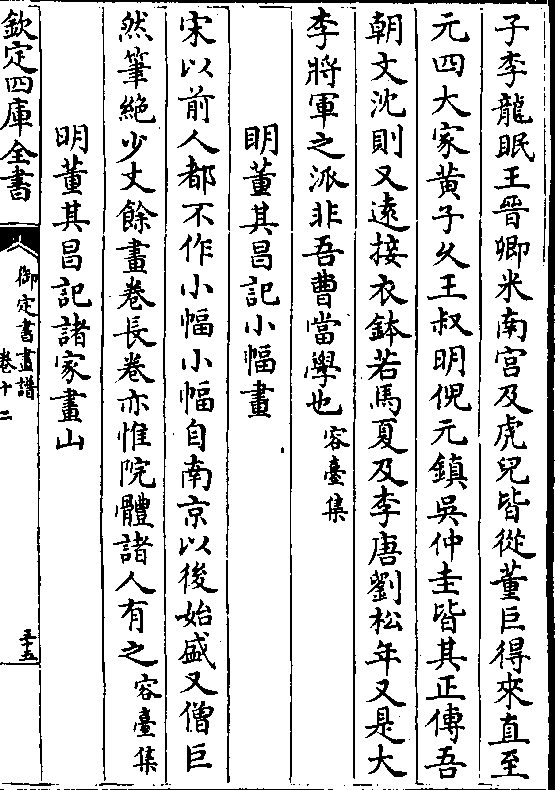 子李龍眠王晉卿米南宫及虎兒皆從董巨得來直至
元四大家黄子久王叔明倪元鎮吳仲圭皆其正傳吾
朝文沈則又遠接衣鉢若馬夏及李唐劉松年又是大
李將軍之派非吾曹當學也容臺集
明董其昌記小幅畫
宋以前人都不作小幅小幅自南京以後始盛又僧巨
然筆絶少丈餘畫卷長卷亦惟院體諸人有之容臺集
明董其昌記諸家畫山
欽定四庫全書
御定書畫譜
卷十二
三十五